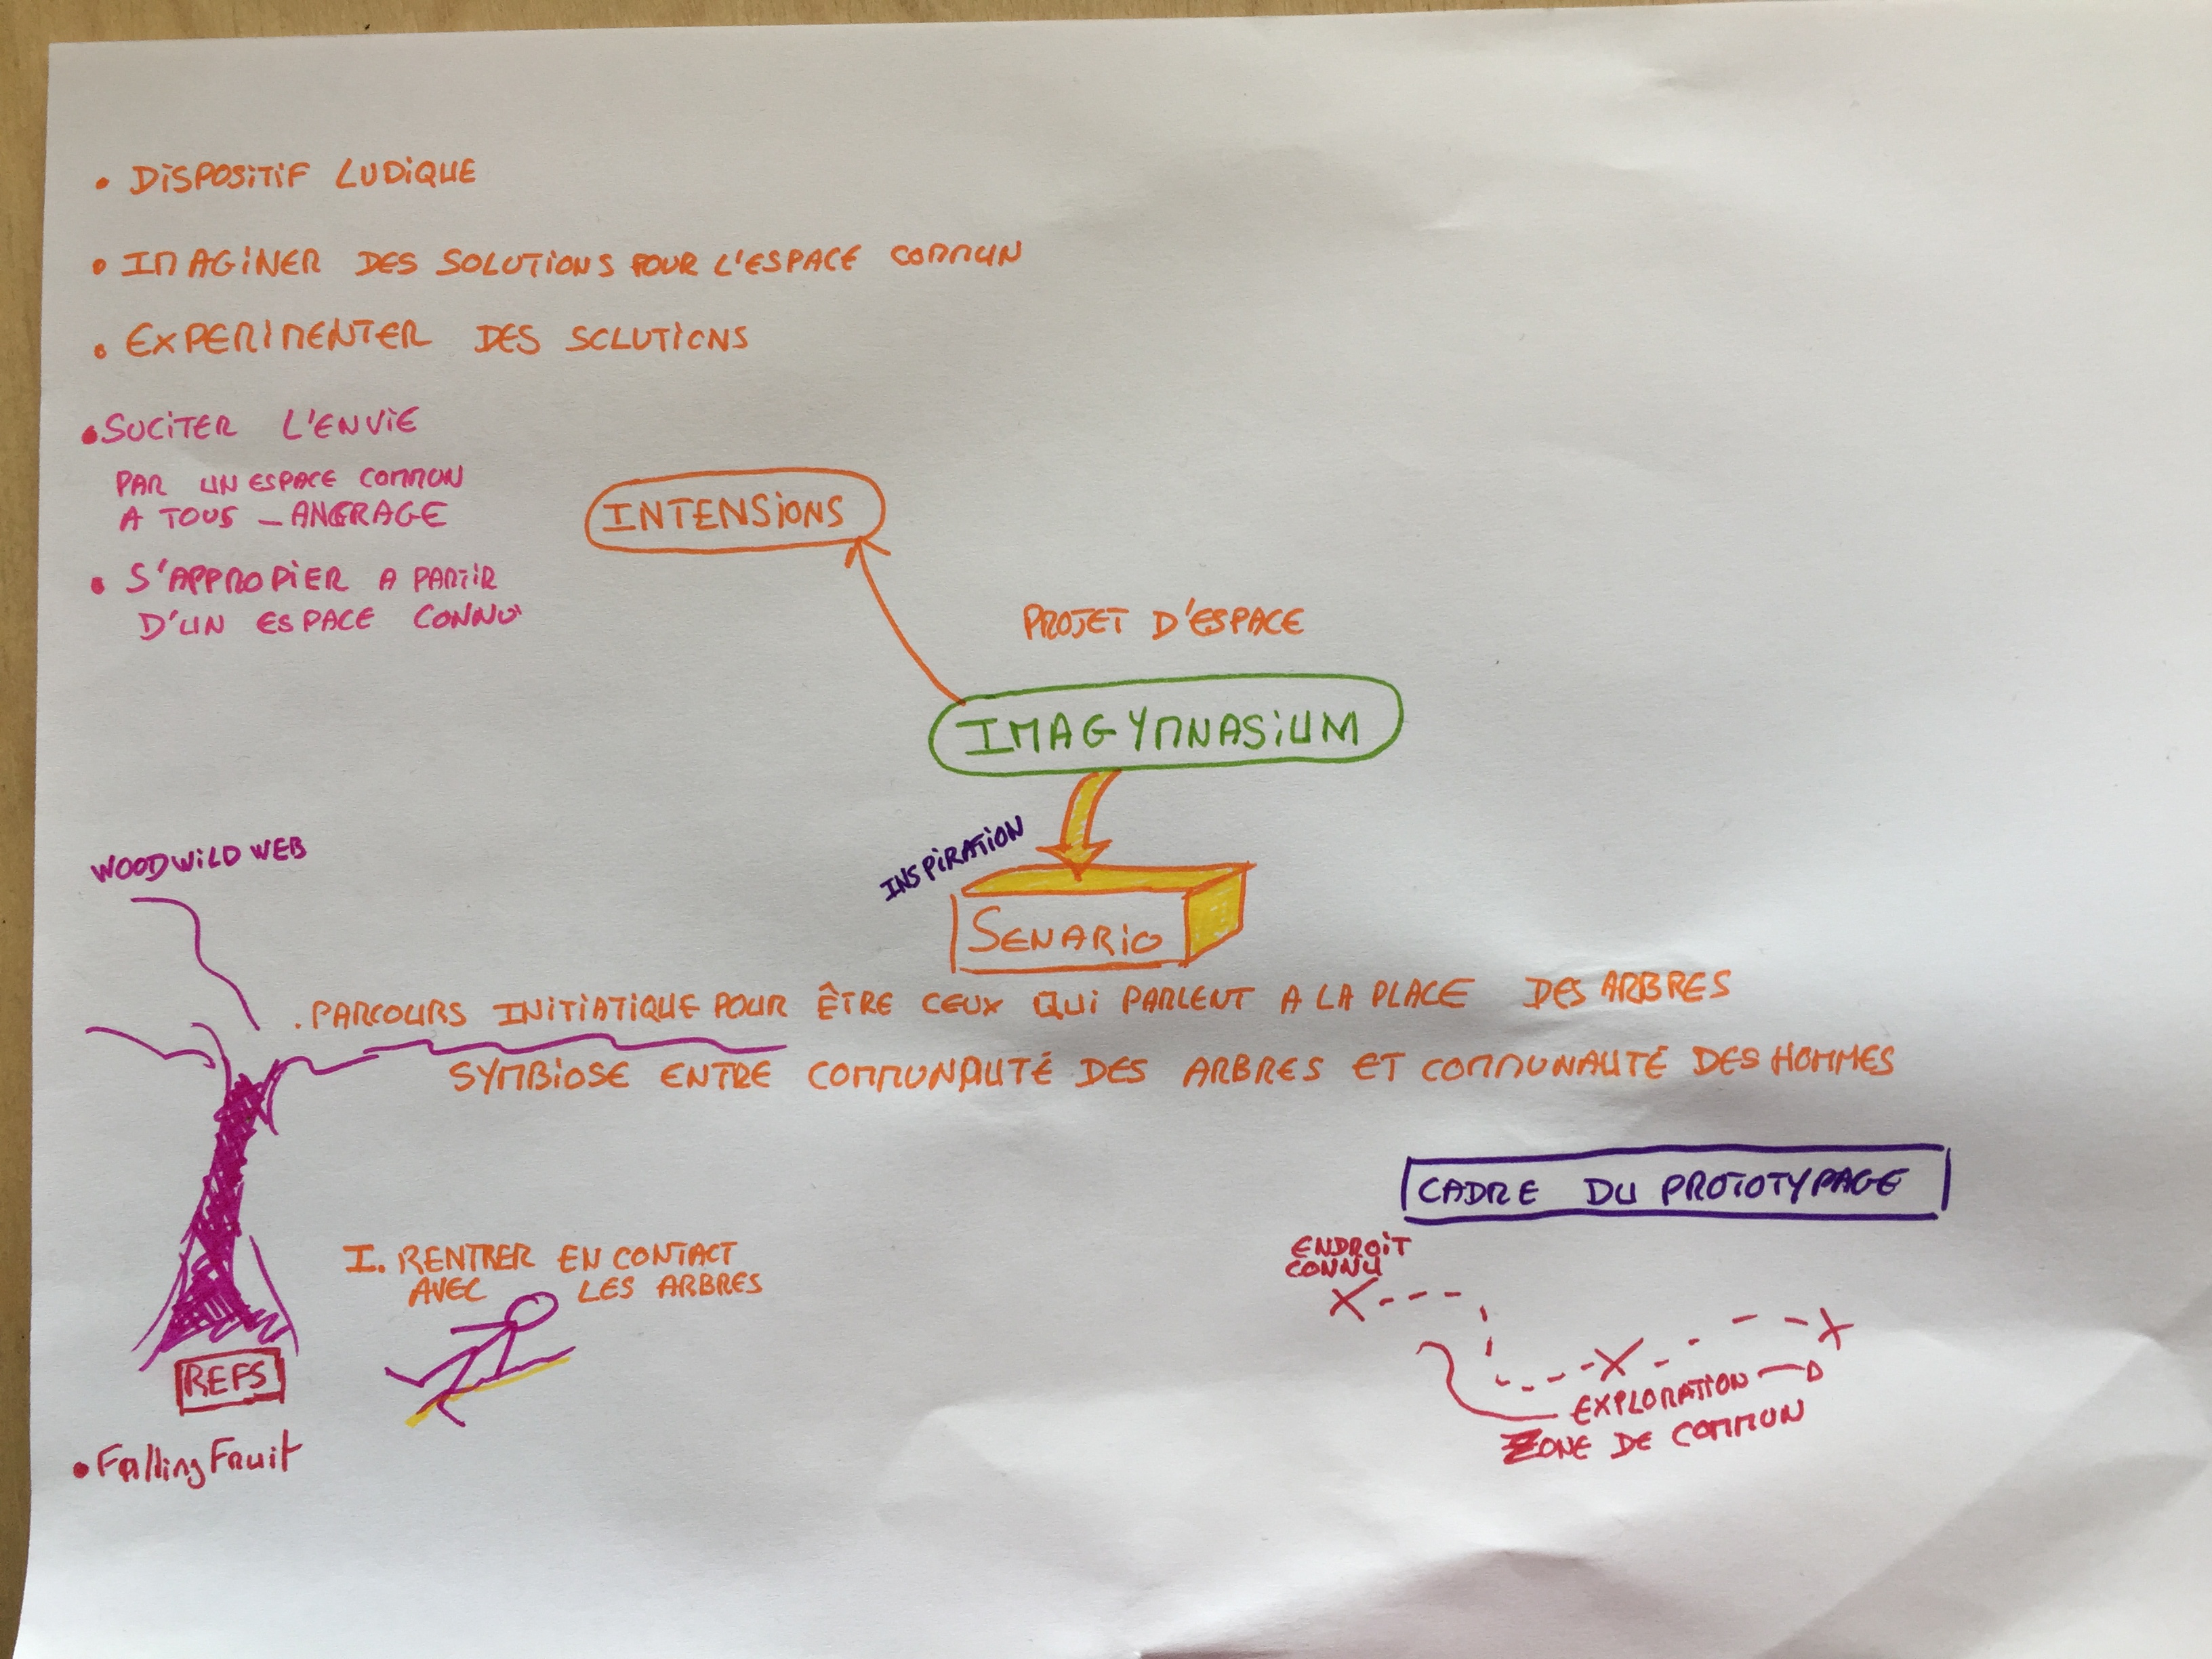 • DISPOSITIF LUDIQUE
• IMAGINER DES SOLUTIONS POUR L'ESPACE COMMUN
• EXPERIMENTER DES SOLUTIONS
• SUCITER L'ENVIE
PAR UN ESPACE COMMUN
A TOUS - ANCRAGE
• S'APPROPIER A PARTIR
D'UN ESPACE CONNU
INTENSIONS
PROJET D'ESPACE
IMAGYMNASIUM
INSPIRATION
SENARIO
WOODWILD WEB
. PARCOURS INITIATIQUE POUR ÊTRE CEUX QUI PARLENT A LA PLACE DES ARBRES
SYMBIOSE ENTRE COMMUNAUTÉ DES ARBRES ET COMMUNAUTÉ DES HOMMES
I. RENTRER EN CONTACT
AVEC LES ARBRES
REFS
• Falling Fruit
CADRE DU PROTOTYPAGE
ENDROIT
CONNU
EXPLORATION
ZONE DE COMMUN